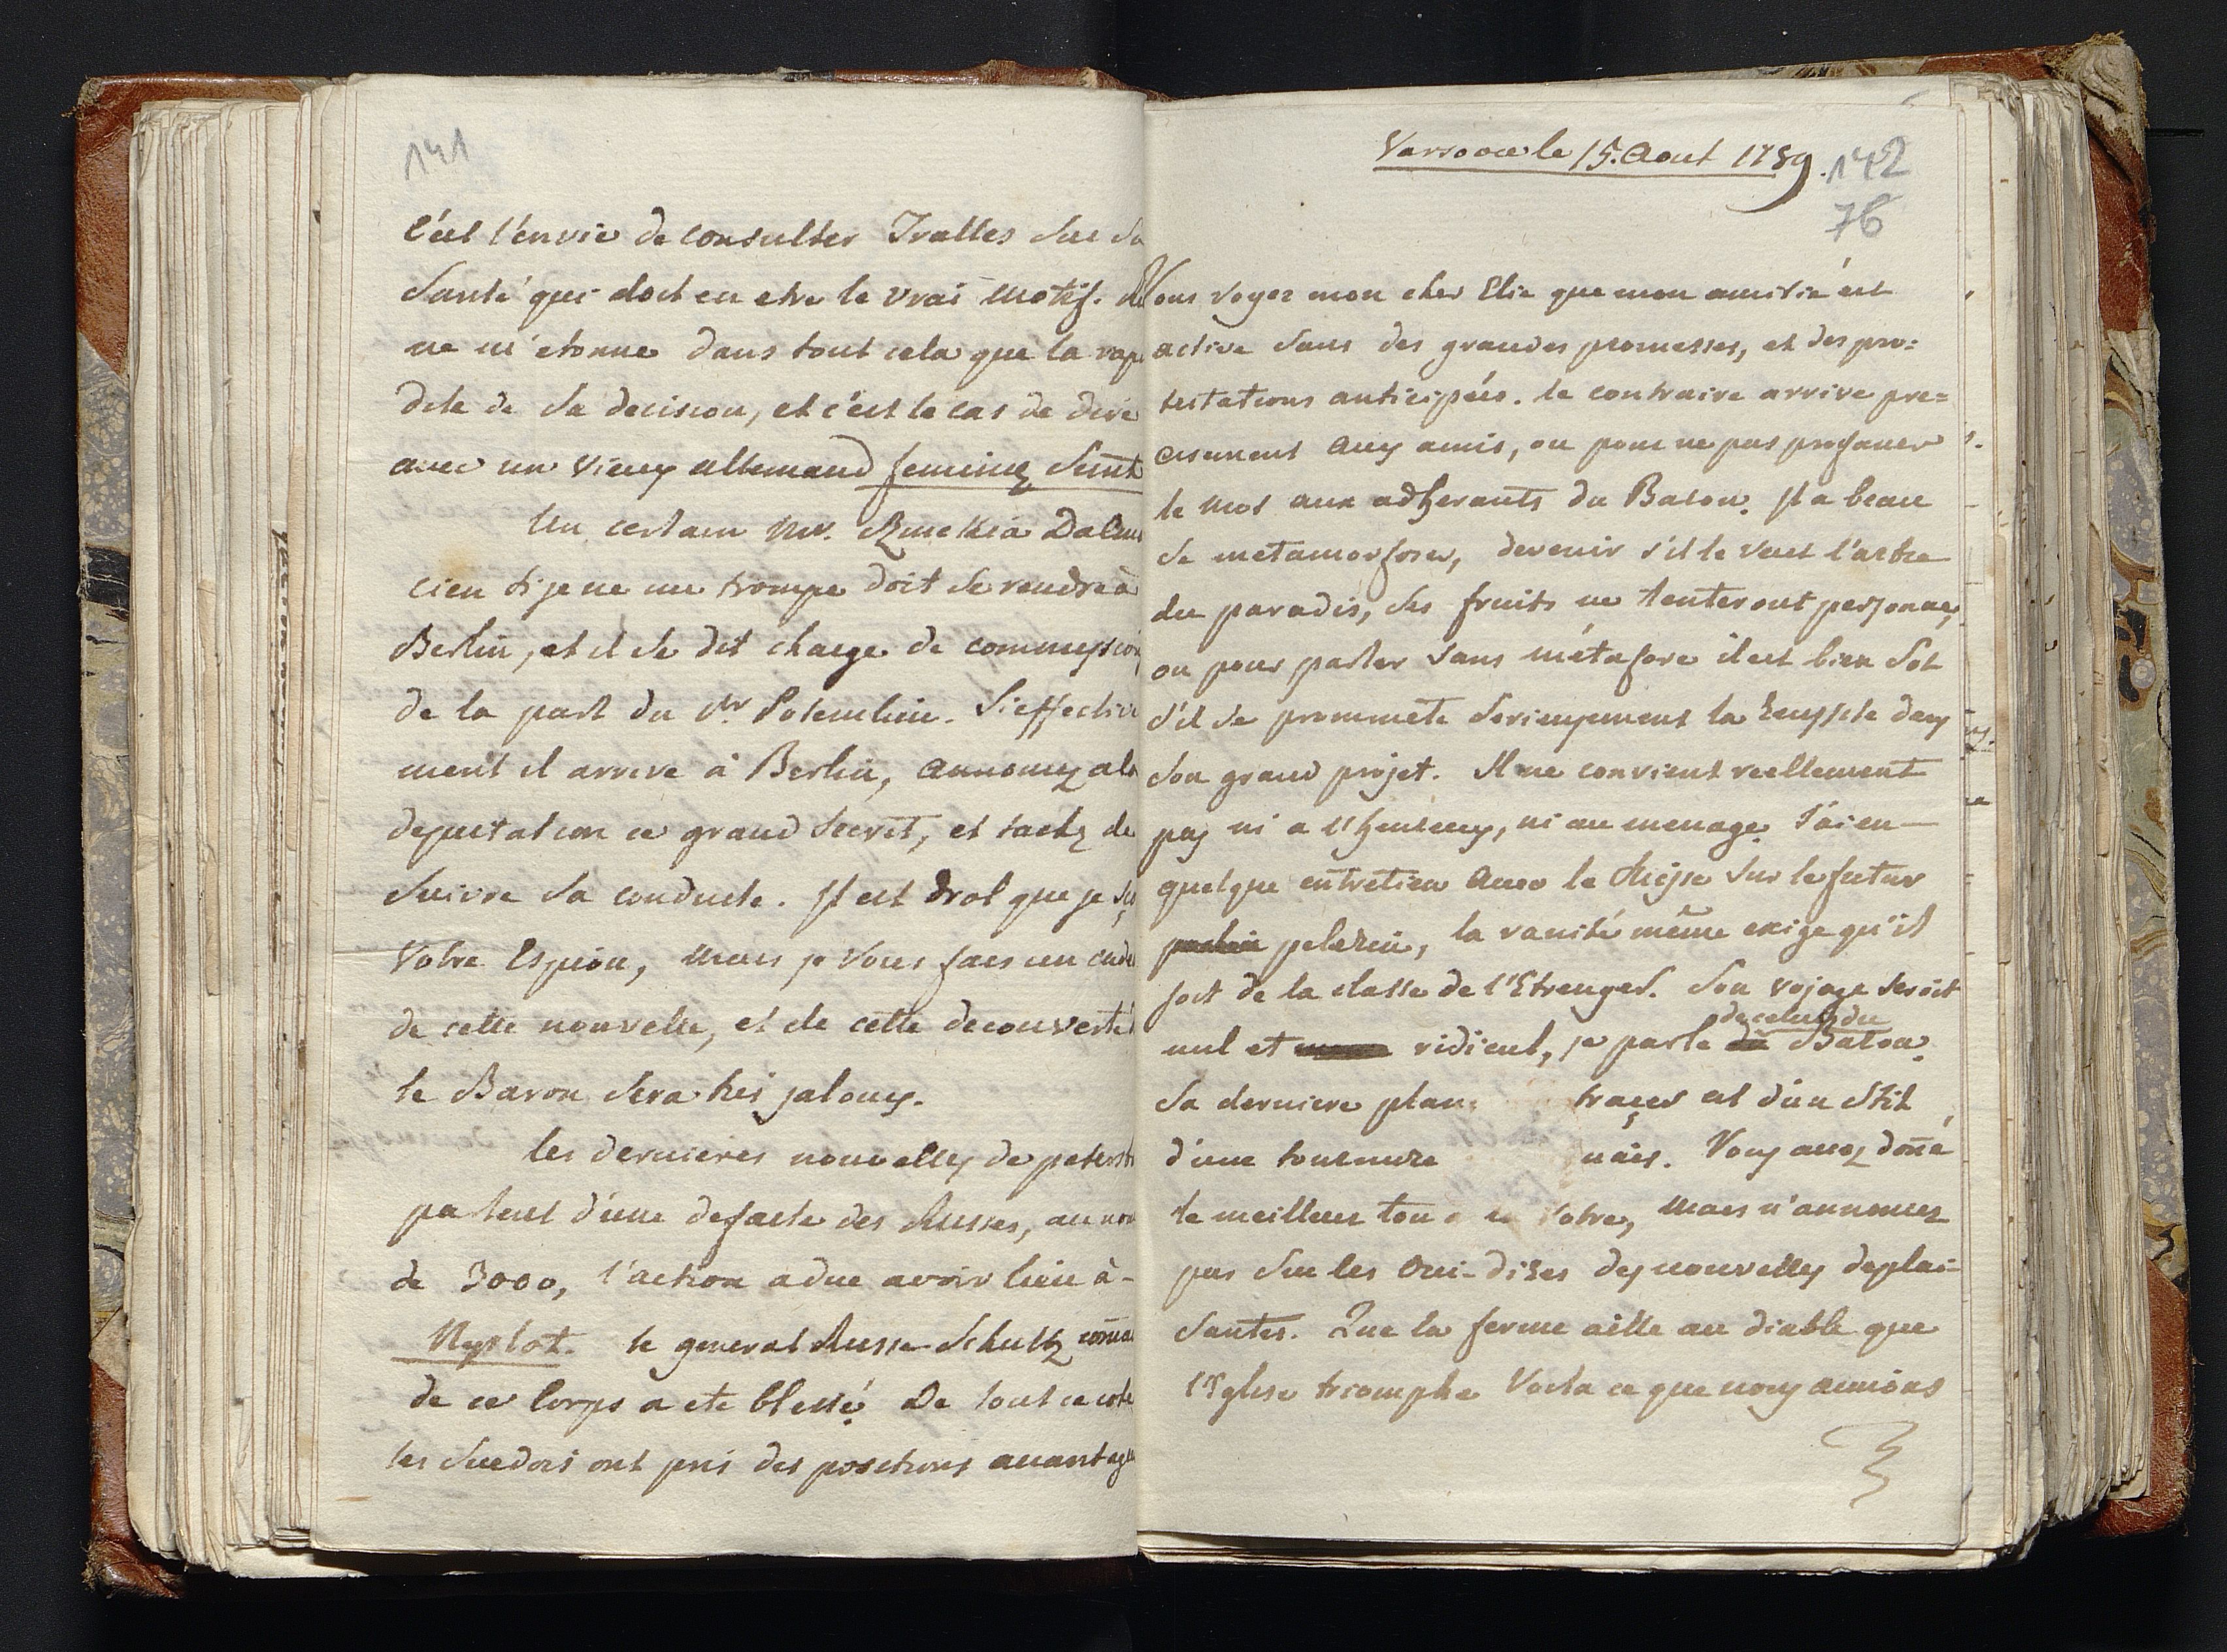 141
c'est l'envie de consulter Tralles sur sa
santé qui doit en etre le vrai motif.
ne m'etonne dans tout cela que la rapi
dité de sa decision, et c'est le cas de dire
avec un vieux allemand feminis sunt
Un certain Mr. Dalma
cien si je ne me trompe doit se rendre à
Berlin, et il se dit charge de commission
de la part du Pr Potemkin. Si effective
ment il arrive à Berlin, annoncez a la
deputation ce grand secret, et tachez de
suivre sa conduite. Il est drol que je
Votre Espion, mais je Vous fais un
de cette nouvelle, et de cette decouverte
le Baron sera tres jaloux.
les dernieres nouvelles de petersb
parlent d'une defaite des Russes, au nom
de 3000, l'action a due avoir lieu à -
Nyslot. le general Russe Schultz coman
de ce Corps a ete blessé. De tout ce coté
les Suedois ont pris des positions avantage
Varsovie le 15. Aout 1789.
142
76
Vous voyez mon cher Elie que mon amitié est
active sans des grandes promesses, et des pro=
testations anticipées. le contraire arrive pre=
cisement aux amis, ou pour ne pas profaner
le mot aux adherants du Baton. Il a beau
se metamorfoser, devenir s'il le veut l'arbre
du paradis, ses fruits ne tenteront personne,
ou pour parler sans métafore il est bien sot
s'il se prommete serieusement la reussite dans
son grand projet. Il ne convient reellement
pas ni a , ni au menage. J'ai eu
quelque entretien avec le sur le futur
pelerin, la vanité même exige qu'il
soit de la classe de l'Etranger. Son vojage seroit
nul et ridicul, je parle de celui du Baton.
Sa derniere plan traçes est d'un stil
d'une tournure nais. Vous avez doñé
le meilleur ton a votre, mais n'annoncez
pas sur les Oui-dires des nouvelles deplai-
santes. Que la ferme aille au diable que
l'Eglise triomphe Voila ce que nous aimons